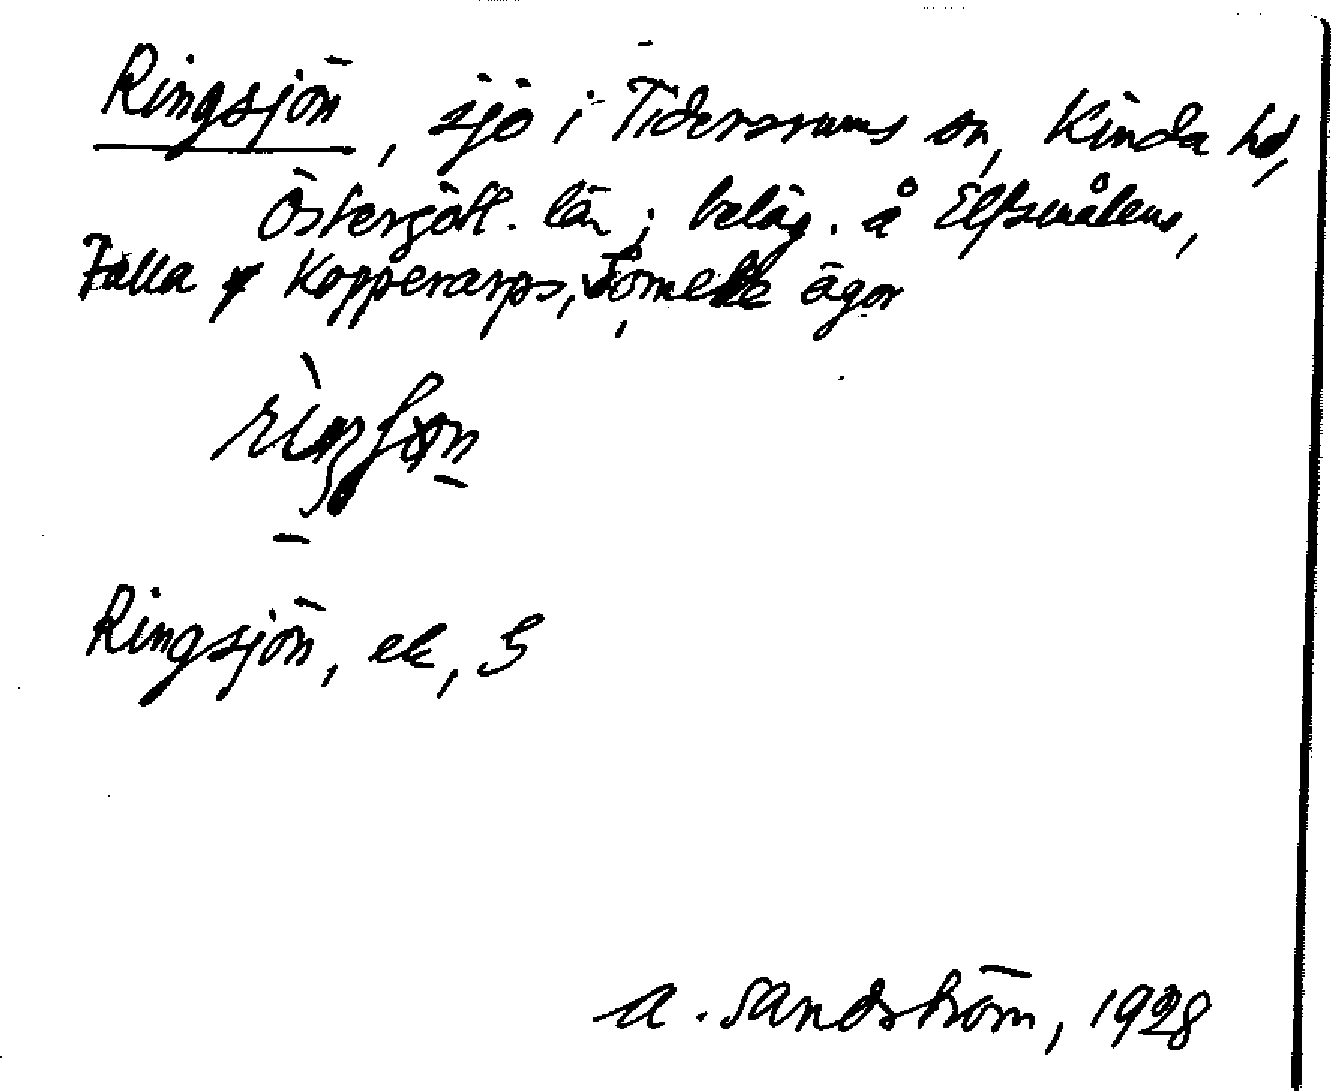 Ringsjön, sjö i Tidersrums sn, Kinda hd,
Östergötl. län; beläg. å Elfsmålens,
Falla Kopperarps, ägor
Ringsjön, ek, 5
A. Sandström, 1928